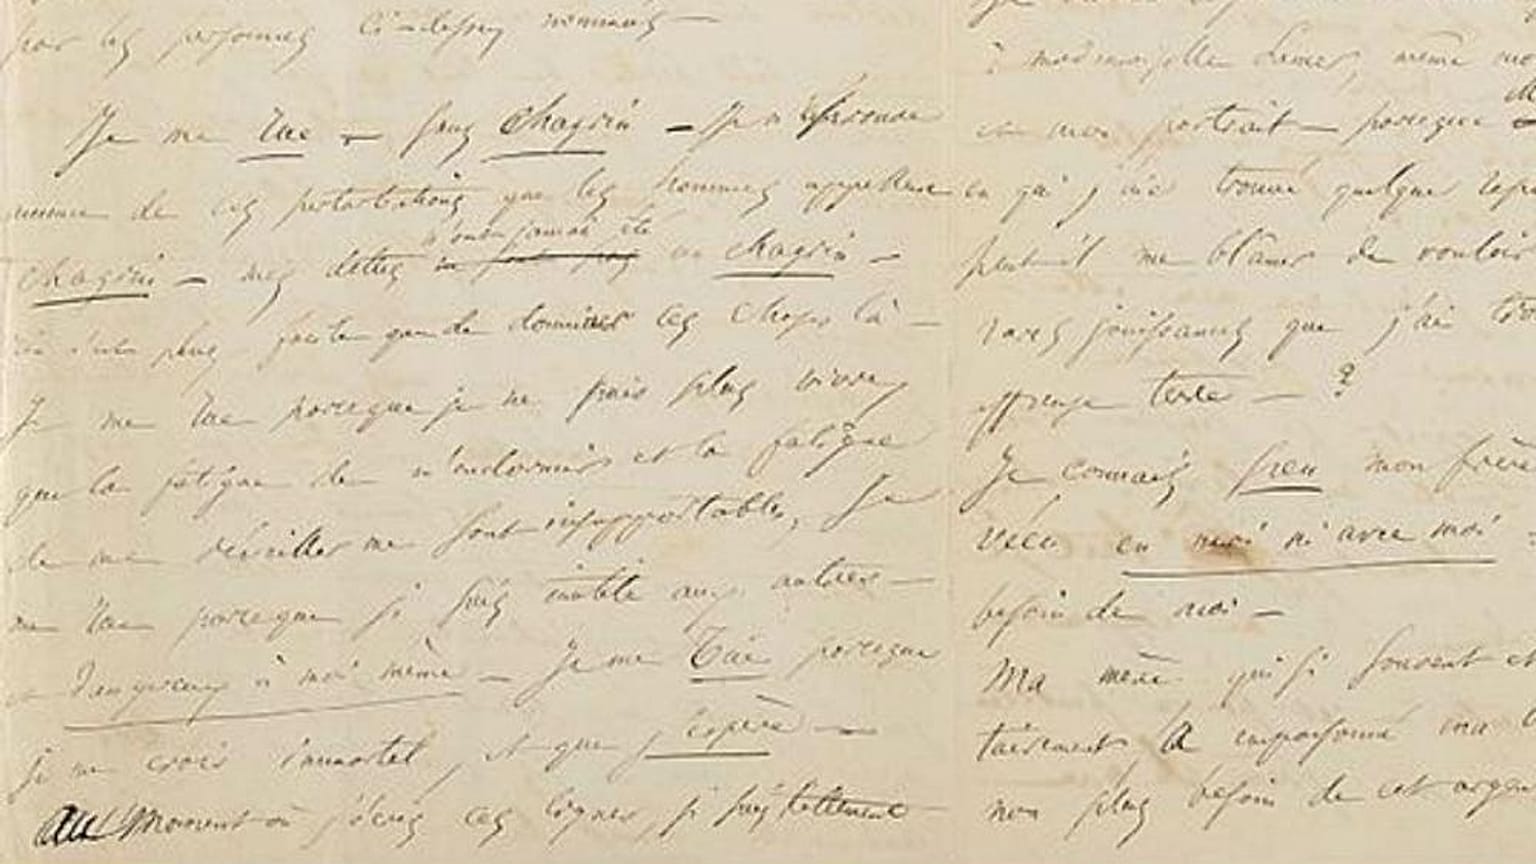 par les personnes ci-dessus nommées —
Je me tue — sans chagrin — Je n'éprouve
aucune de ces perturbations que les hommes appellent
n'ont jamais été
chagrin — mes dettes un chagrin —
rien n'est plus facile que de dominer ces choses là —
Je me tue parceque je ne puis plus vivre,
que la fatigue de m'endormir et la fatigue
de me réveiller me sont insupportables, Je
me tue parceque je suis inutile aux autres —
et dangereux à moi même — Je me tue parceque
je me crois immortel, et que j'espère —
Au moment où j'écris ces lignes, je suis tellement
à mademoiselle Lemer, même
et mon portrait — parceque
en qui j'aie trouvé quelque
peut-il me blâmer de vouloir
rares jouissances que j'ai
affreuse terre — ?
Je connais peu mon frère
vécu en moi ni avec moi
besoin de moi —
Ma mère qui si souvent et
tairement a empoisonné ma
non plus besoin de cet